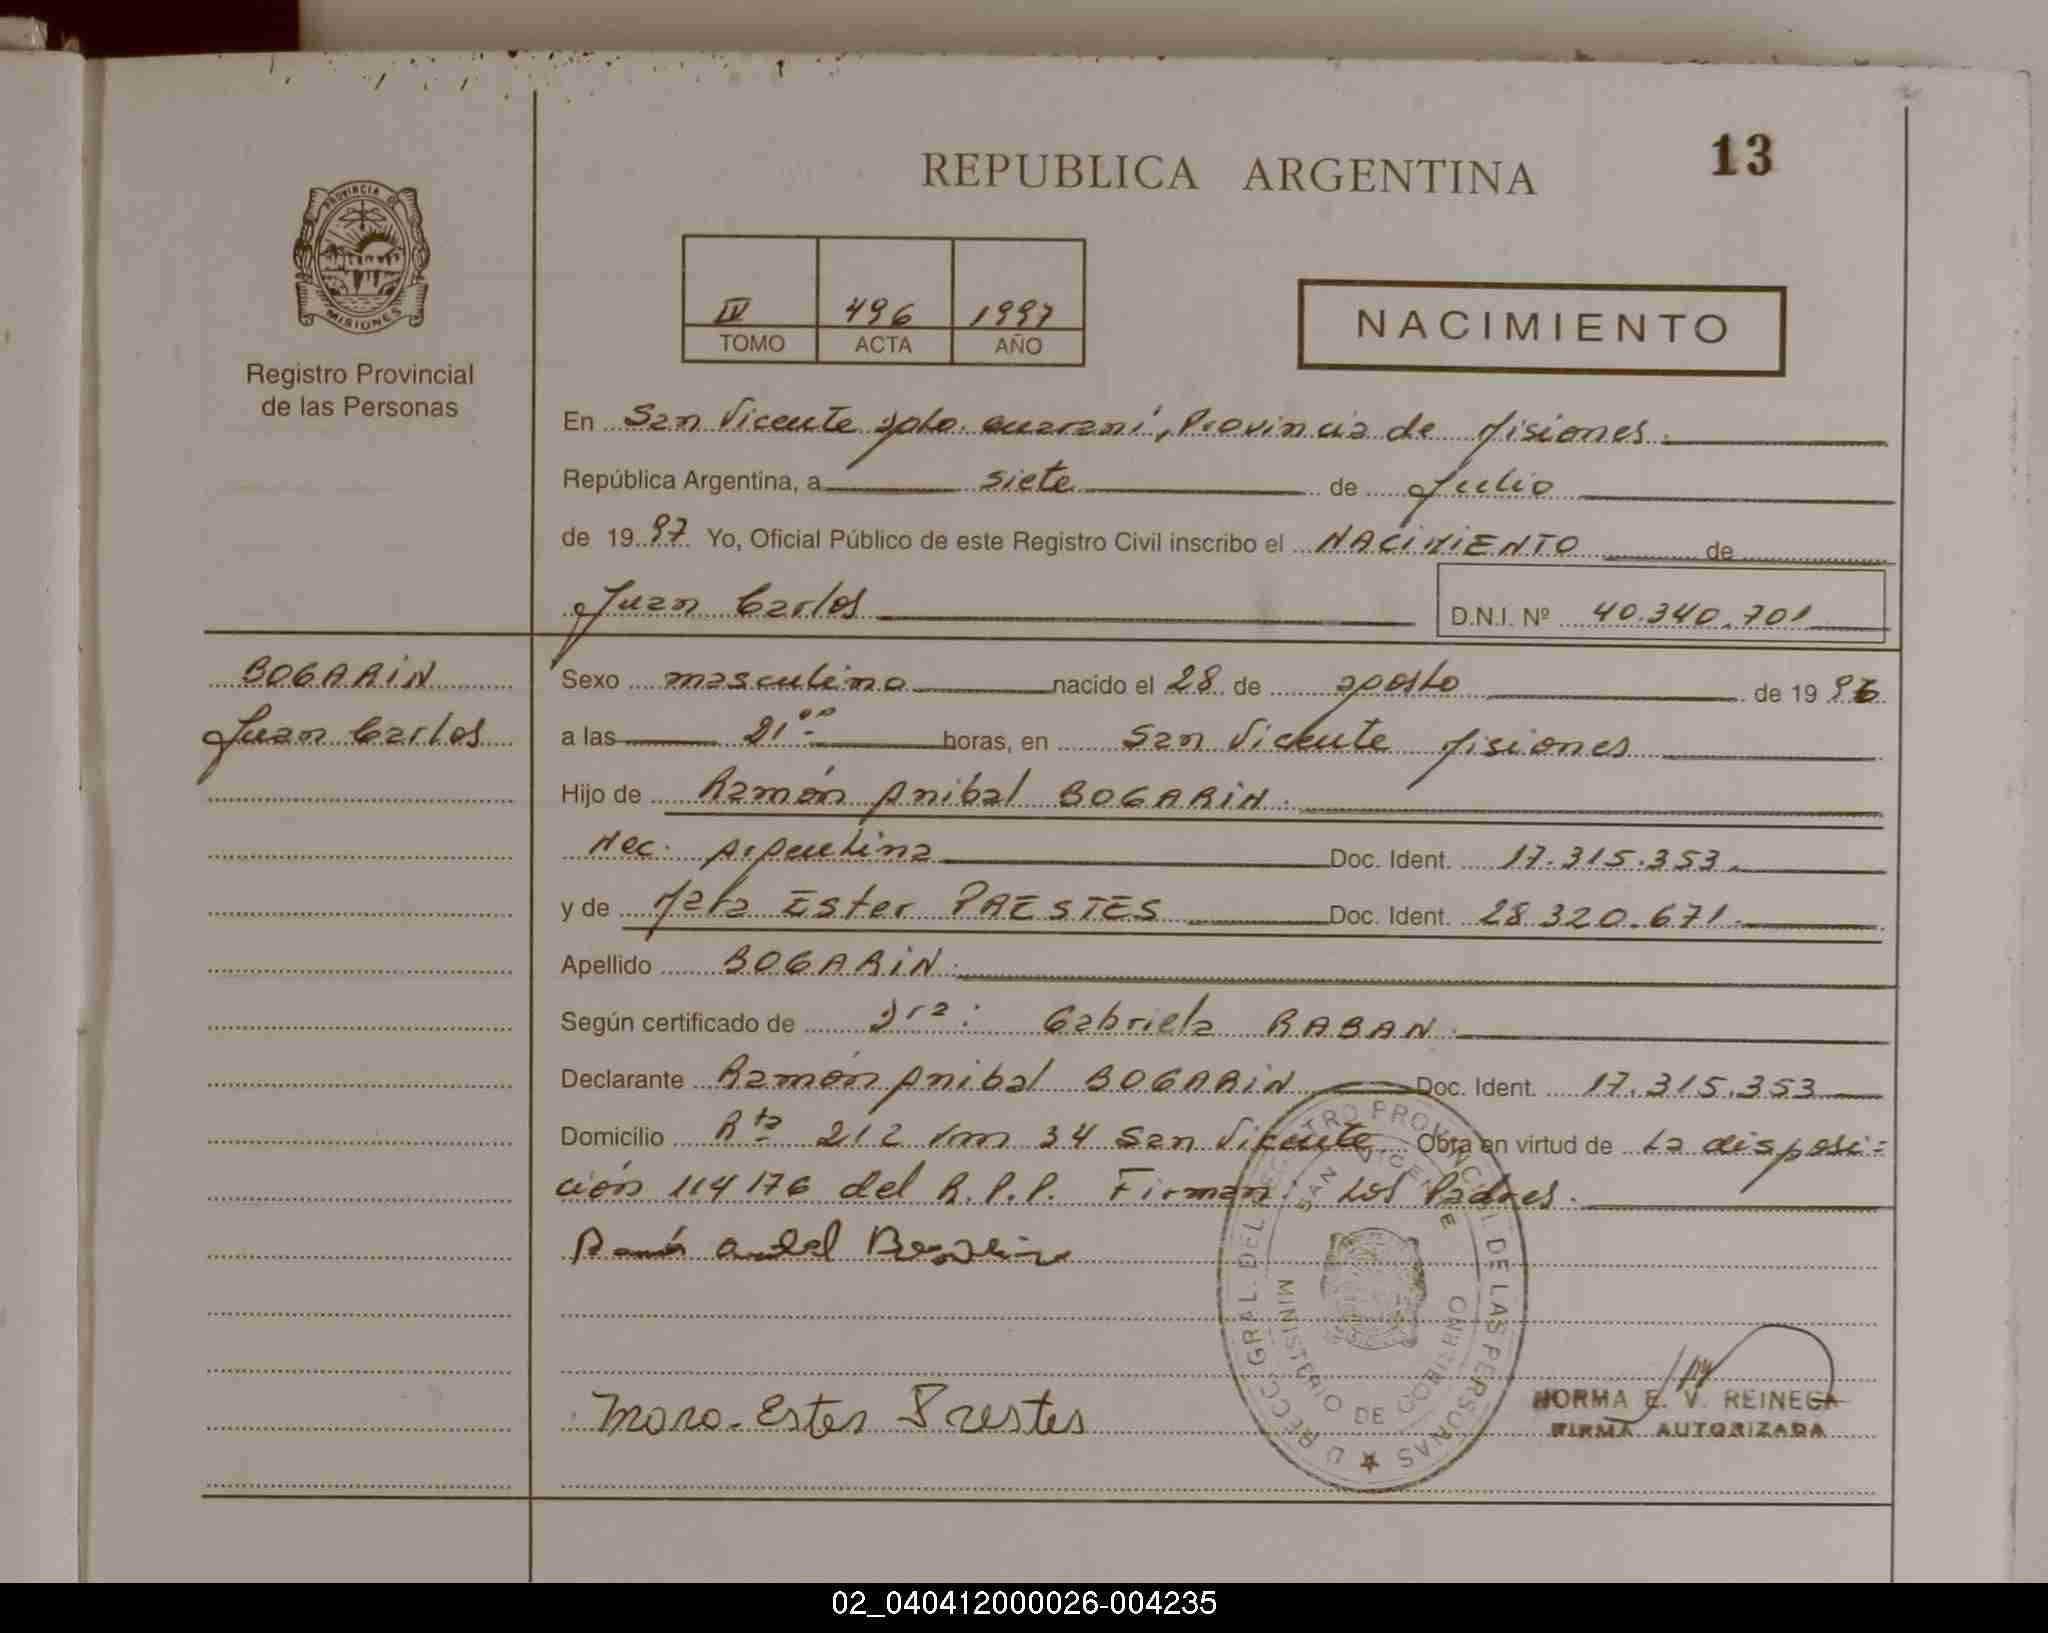 13
REPUBLICA ARGENTINA
PROVINCIA DE
MISIONES
Registro Provincial
de las Personas
IV 496 1997
TOMO ACTA AÑO
NACIMIENTO
En San Vicente Dpto. Guaraní, Provincia de Misiones.
República Argentina, a siete de Julio
de 1997 Yo, Oficial Público de este Registro Civil inscribo el NACIMIENTO de
Juan Carlos D.N.I. Nº 40.340.701
BOGARIN
Juan Carlos
Sexo masculino nacido el 28 de agosto de 1996
a las 21 00 horas, en San Vicente Misiones
Hijo de Ramón Anibal BOGARIN.
Nac. Argentina Doc. Ident. 17.315.353.
y de Ester Doc. Ident. 28.320.671.
Apellido BOGARIN.
Según certificado de Dra: Gabriela RABAN.
Declarante Ramón Anibal BOGARIN Doc. Ident. 17.315.353
Domicilio Rta 212 km 34 San Vicente Obra en virtud de La disposi=
ción 114176 del R.P.P. Firman: Los Padres.
Mara Ester Prestes
DIRECC GRAL DEL REGISTRO PROVINCIAL DE LAS PERSONAS
SAN VICENTE
MINISTERIO DE GOBIERNO
NORMA E. V. REINEGA
FIRMA AUTORIZADA
02_040412000026-004235